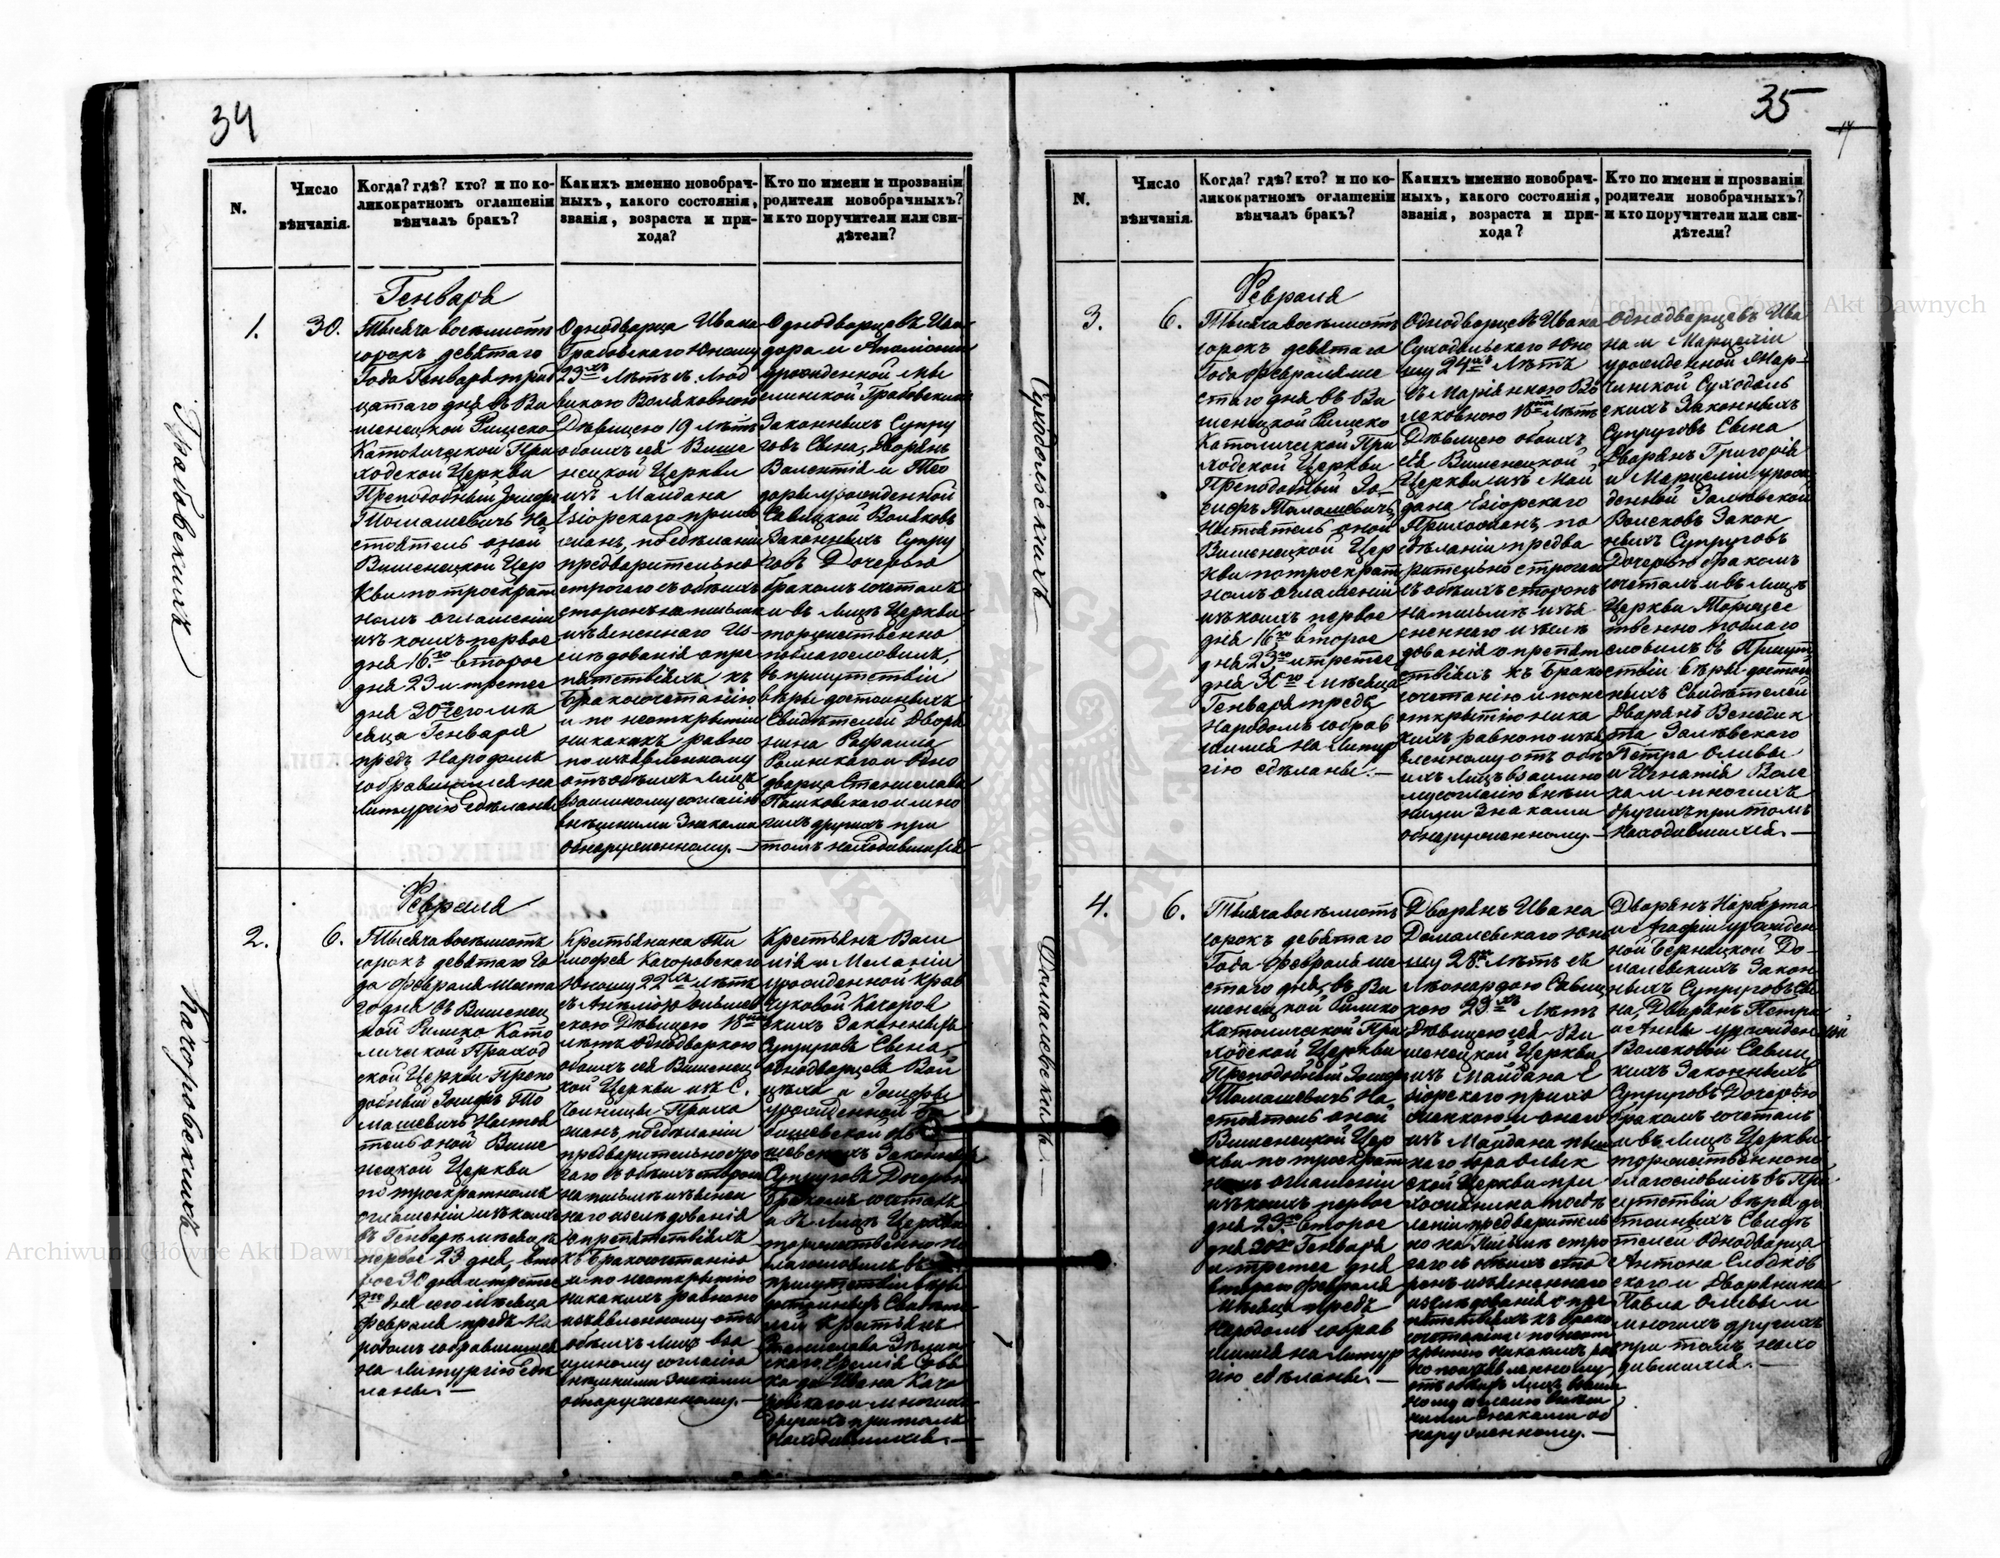 34
N.
Число
вѣнчанія.
Когда? гдѣ? кто? и по ко-
ликократномъ оглашеніи
вѣнчалъ бракъ?
Какихъ именно новобрач-
ныхъ, какого состоянія,
званія, возраста и при-
хода?
Кто по имени и прозванію
родители новобрачныхъ?
и кто поручители или сви-
дѣтели?
Грабовскихъ
1.
30.
Генваря
Тысяча восемьсотъ
сорокъ девятаго
Года Генваря трид
цатаго дня въ Ви
шенецкой Римско
Католической При
ходской Церкви
Преподобный Іосифъ
Томашевичъ На
стоятель оной
Вишенецкой Цер
кви по троекрат
номъ оглашеніи
изъ коихъ первое
дня 16го второе
дня 23 и третее
дня 30го сего мѣ
сяца Генваря
предъ Народомъ
собравшимся на
Литургію сдѣланы
Однодворца Ивана
Грабовскаго Юношу
23хъ Лѣтъ съ Люд
викою Воляковною
Дѣвицею 19 лѣтъ
обоихъ сея Више
нецкой Церкви
изъ Майдана
Езіорскаго прихо
жанъ, по сдѣланіи
предварительно
строгаго съ обѣихъ
сторонъ на письмѣ
изъясненнаго Из
слѣдованія о пре
пятствіяхъ къ
Бракосочетанію
и по неоткрытіи
никакихъ равно
по изъявленному
отъ обѣихъ Лицъ
взаимному согласію
внѣшними Знаками
обнаруженному. —
Однодворцевъ
дора и Аполоніи
урожденной
Грабовскихъ
Законныхъ Супру
говъ Сына, Дворянъ
Валентія и Тео
доры урожденной
Савицкой Воляковъ
Законныхъ Супру
говъ Дочерью
бракомъ сочеталъ
и въ Лицѣ Церкви
торжественно
поблагословилъ,
въ присутствіи
вѣры достойныхъ
Свидѣтелей Дворя
нина Рафаила
Ролинскаго и Одно
дворца Станислава
Пашковскаго и мно
гихъ другихъ при
томъ находившихся
Качоровскихъ
2.
6.
Февраля
Тысяча восемьсотъ
сорокъ девятаго Го
да Февраля шеста
го дня въ Вишенец
кой Римско Като
лической Приход
ской Церкви Препо
добный Іосифъ То
машевичъ Настоя
тель оной Више
нецкой Церкви
по троекратномъ
оглашеніи изъ коихъ
въ Генварѣ мѣсяцѣ
первое 23 дня, вто
рое 30 дня и третее
2го дня сего мѣсяца
Февраля предъ На
родомъ собравшимся
на Литургію сдѣ
ланы. —
Крестьянина Ти
мофея Качоровскаго
Юношу 22хъ Лѣтъ
скою Дѣвицею 18
лѣтъ однодворкою
обоихъ сея Вишенец
кой Церкви изъ С.
Прихо
жанъ, по сдѣланіи
предварительно стро
гаго съ обѣихъ сторонъ
на письмѣ изъяснен
наго изслѣдованія
о препятствіяхъ
къ Бракосочетанію
и по неоткрытію
никакихъ равно по
изъявленному отъ
обѣихъ Лицъ вза
имному согласію
внѣшними Знаками
обнаруженному. —
Крестьянъ Васи
лія и Меланіи
урожденной Крав
чуковой Качоров
скихъ Законныхъ
Супруговъ Сына,
однодворцевъ Вой
цѣха и Іозефы
урожденной
Законныхъ
Супруговъ Дочерью
бракомъ сочеталъ
и въ Лицѣ Церкви
торжественно по
благословилъ въ
присутствіи вѣры
достойныхъ Свидѣте
лей Крестьянъ
Станислава
ка да Ивана Качо
ровскаго и многихъ
другихъ при томъ
находившихся. —
35
N.
Число
вѣнчанія.
Когда? гдѣ? кто? и по ко-
ликократномъ оглашеніи
вѣнчалъ бракъ?
Какихъ именно новобрач-
ныхъ, какого состоянія,
званія, возраста и при-
хода?
Кто по имени и прозваніи
родители новобрачныхъ?
и кто поручители или сви-
дѣтели?
Суходольскихъ
3.
6.
Февраля
Тысяча восемьсотъ
сорокъ девятаго
Года Февраля ше
стаго дня въ Ви
шенецкой Римско
Католической При
ходской Церкви
Преподобный Іо-
сифъ Томашевичъ
Настоятель оной
Вишенецкой Цер
кви по троекрат
номъ оглашеніи
изъ коихъ первое
дня 16го второе
дня 23го и третее
дня 30го мѣсяца
Генваря предъ
Народомъ собрав
шимся на Литур
гію сдѣланы. —
Однодворцевъ Ивана
Суходольскаго Юно
шу 24хъ Лѣтъ
съ Маріянною Во
лековною 18 Лѣтъ
Дѣвицею обоихъ
сея Вишенецкой
Церкви изъ Май
дана Езіорскаго
Прихожанъ, по
сдѣланіи предва
рительно строгаго
съ обѣихъ сторонъ
на письмѣ изъя
сненнаго изслѣ
дованія о препят
ствіяхъ къ Брако
сочетанію и по не
открытію ника
кихъ равно по изъя
вленному отъ обѣ
ихъ Лицъ взаимно
му согласію внѣш
ними Знаками
обнаруженному. —
Однодворцевъ Ива
на и Марцеліи
урожденной Мар-
чинской Суходоль
скихъ Законныхъ
Супруговъ Сына
Дворянъ Григорія
и Марцеліи урож
денной Залѣвской
Волековъ Закон
ныхъ Супруговъ
Дочерью бракомъ
сочеталъ и въ Лицѣ
Церкви Торжес
твенно поблаго
словилъ въ Присут
ствіи вѣры достой
ныхъ Свидѣтелей
Дворянъ Бенедик
та Залѣвскаго
Петра Оливы
и Игнатія Воле
ка и многихъ
другихъ при томъ
находившихся. —
Домалевскихъ. —
4.
6.
Тысяча восемьсотъ
сорокъ девятаго
Года Февраля ше
стаго дня, въ Ви
шенецкой Римско
Католической При
ходской Церкви
Преподобный Іосифъ
Томашевичъ На
стоятель оной
Вишенецкой Цер
кви по троекрат
номъ оглашеніи
изъ коихъ первое
дня 23го второе
дня 30го Генваря
и третее дня
втораго Февраля
мѣсяца предъ
Народомъ собрав
шимся на Литур
гію сдѣланы. —
Дворянъ Ивана
Домалевскаго Юно
шу 28 Лѣтъ съ
Леонардою Савиц
кою 23хъ Лѣтъ
Дѣвицею сея Ви
шенецкой Церкви
изъ Майдана Е
зіорскаго прихо
жанкою и онаго
изъ Майдана
ской Церкви при
хожанина по сдѣ
ланіи предваритель
но на Письмѣ стро
гаго съ обѣихъ сто
ронъ изъясненнаго
изслѣдованія о пре
пятствіяхъ къ брако
сочетанію и по неот
крытію никакихъ рав
но по изъявленному
отъ обѣихъ Лицъ взаим
ному согласію внѣш
ними Знаками об
наруженному. —
Дворянъ Норберта
и Агафіи урожден
ной Верницкой До-
малевскихъ Закон
ныхъ Супруговъ Сы
на, Дворянъ Петра
и Анны урожденной
Волековой Савиц
кихъ Законныхъ
Супруговъ Дочерью
бракомъ сочеталъ
и въ Лицѣ Церкви
торжественно по
благословилъ въ При
сутствіи вѣры до
стойныхъ Свидѣ
телей однодворца
Антона Слодков
скаго и Дворянина
Павла Оливы и
многихъ другихъ
при томъ нахо
дившихся. —
Archiwum Główne Akt Dawnych
Archiwum Główne Akt Dawnych